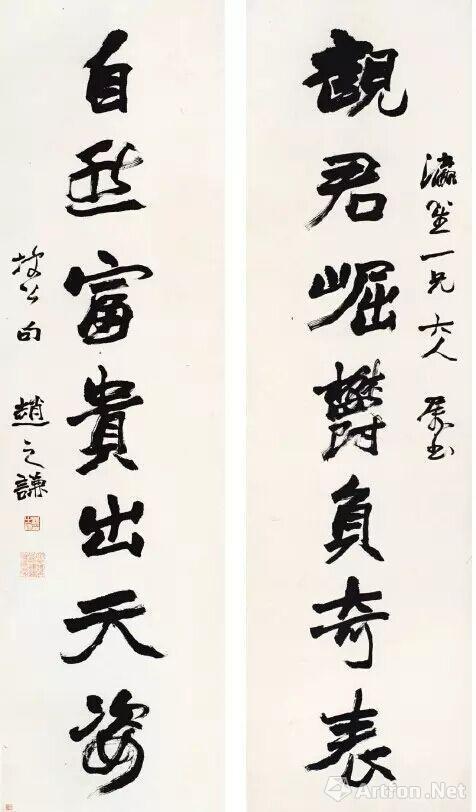 瀛一兄大人屬書
觀君崛鬱負奇表
自然富貴出天姿
坡公句 趙之謙
Artron.Net